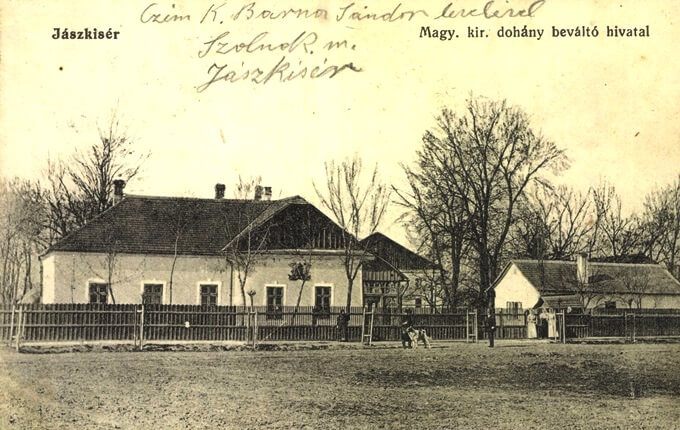 Jászkisér
Magy. kir. dohány beváltó hivatal
Czim K. Barna Sándor
Szolnok. m.
Jászkisér